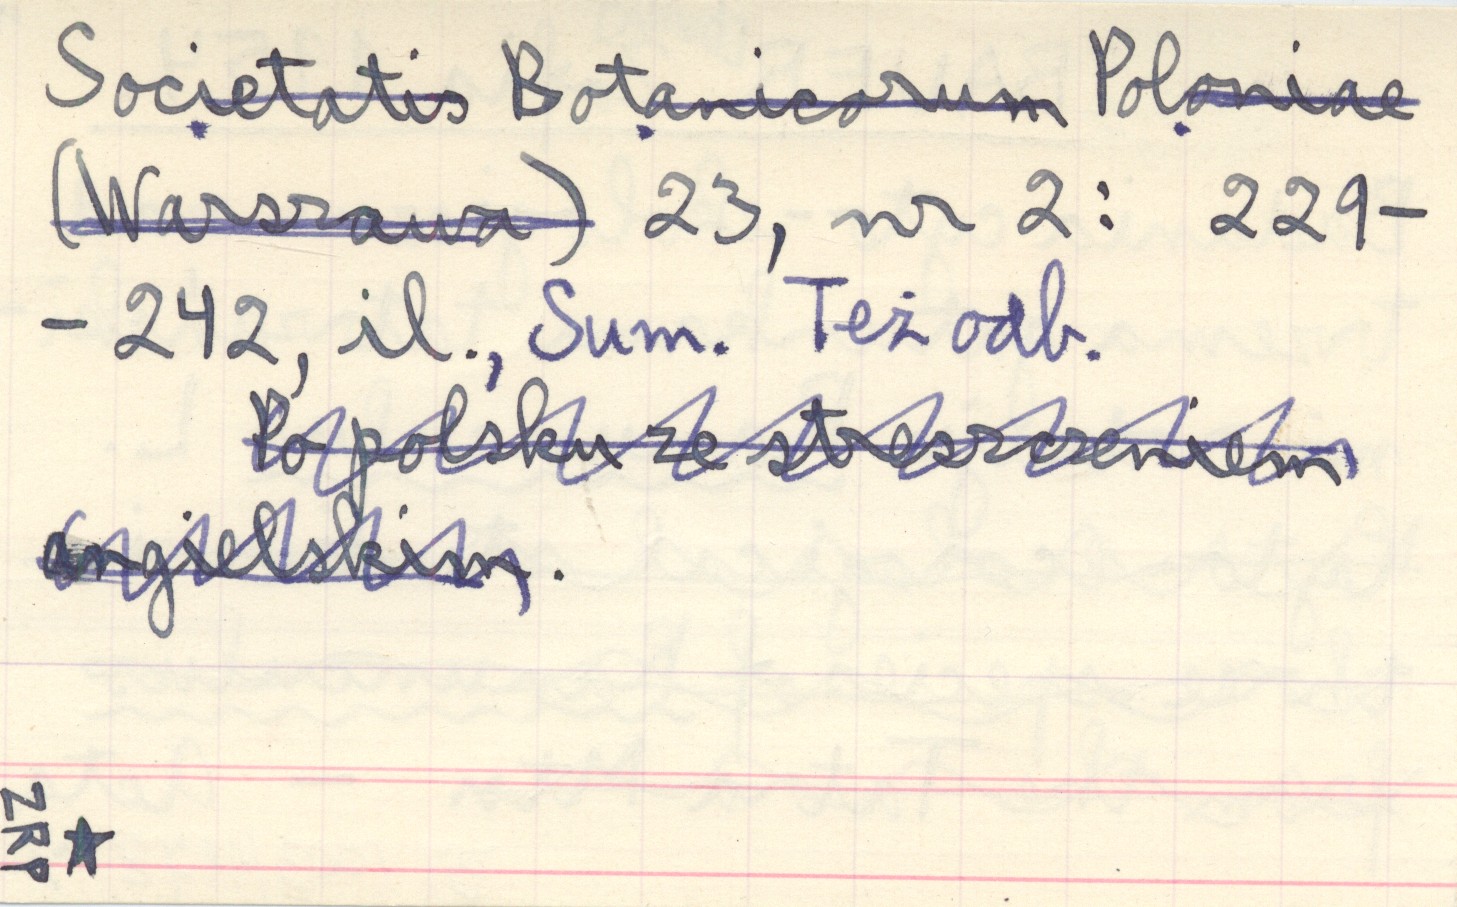 Societatis Botanicorum Poloniae
(Warszawa) 23, nr 2: 229-
-242, il., Sum. Też odb.
Po polsku ze streszczeniem
angielskim.
ZRP